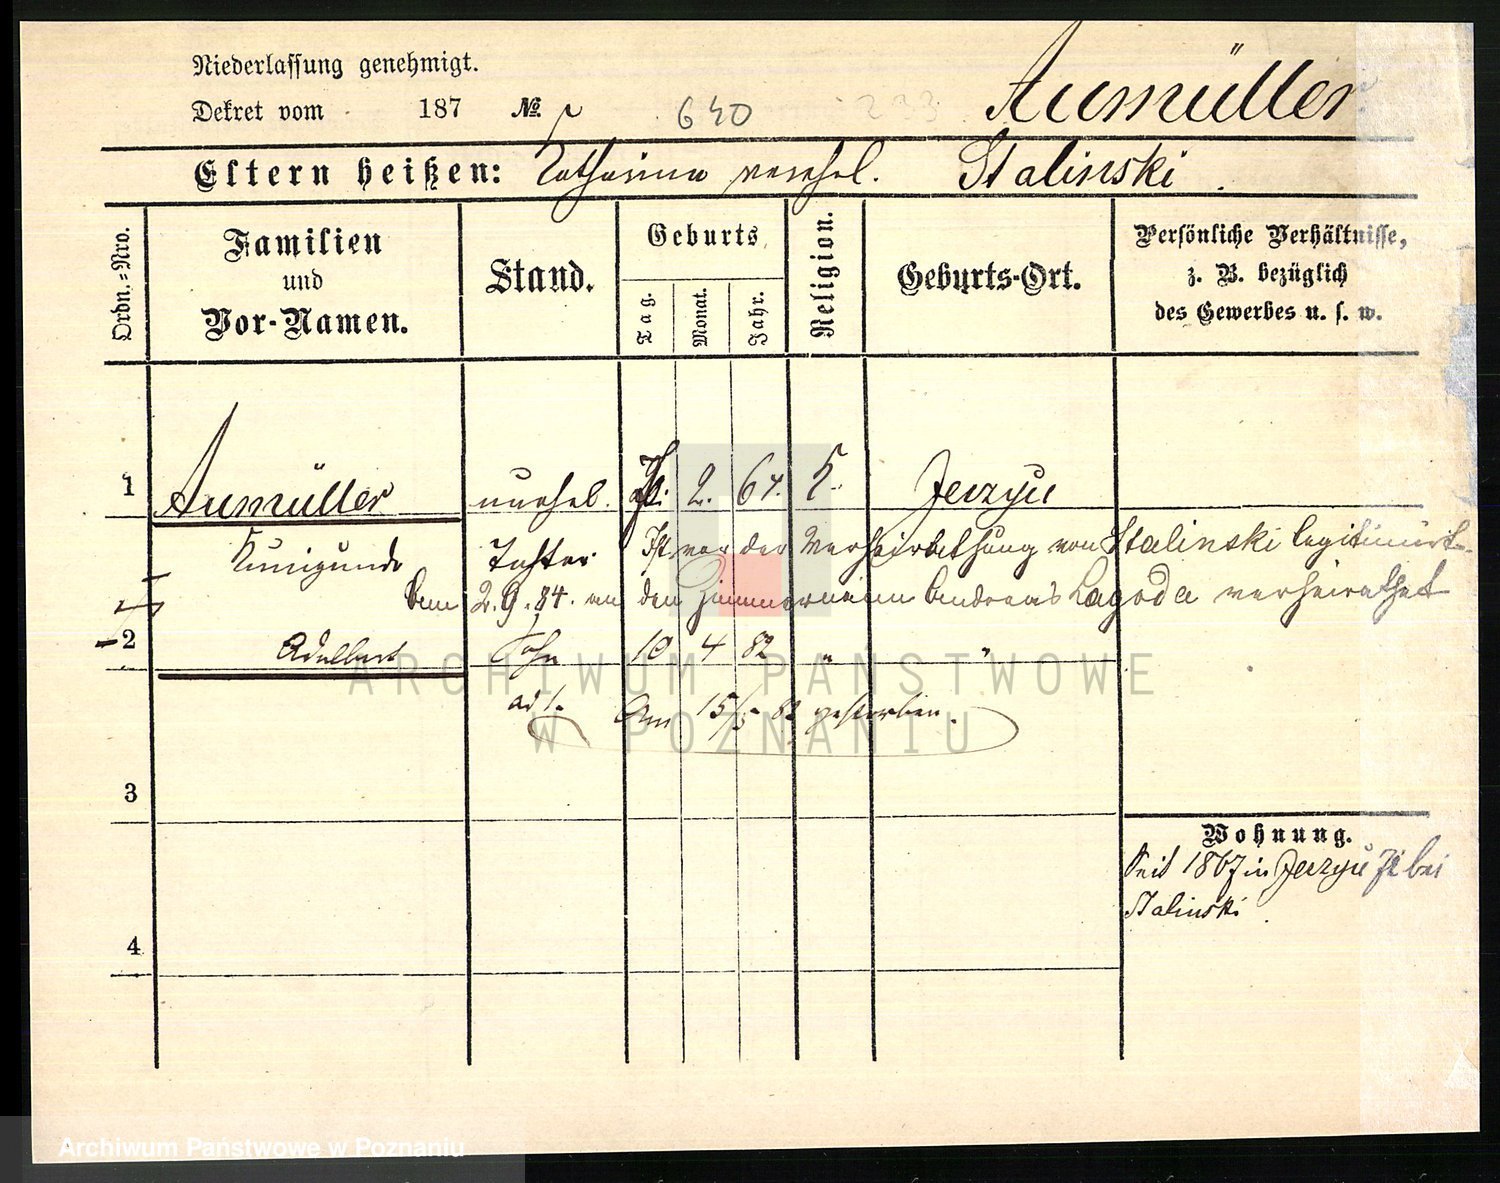 Niederlassung genehmigt.
Aumüller
Dekret vom 187 № 640
Eltern heißen: Catharina verehel. Stalinski.
Ordn.=Nro.
Familien und Vor-Namen.
Stand.
Geburts
Tag.
Monat.
Jahr.
Religion.
Geburts-Ort.
Persönliche Verhältnisse,
z. B. bezüglich
des Gewerbes u. s. w.
1 Aumüller unehel. 2. 64. K. Jerzyce
Kunigunde Tochter Ist vor der Verheirathung von Stalinski legitimirt.
Am 2.9.84. an den Zimmermann Andreas Lagoda verheirathet
2 Adalbert Sohn 10 4 82 " "
ad 1. Am 15/5 82 gestorben.
3
Wohnung.
Seit 1867 in Jerzyce bei
Stalinski.
4
ARCHIWUM PAŃSTWOWE
W POZNANIU
Archiwum Państwowe w Poznaniu